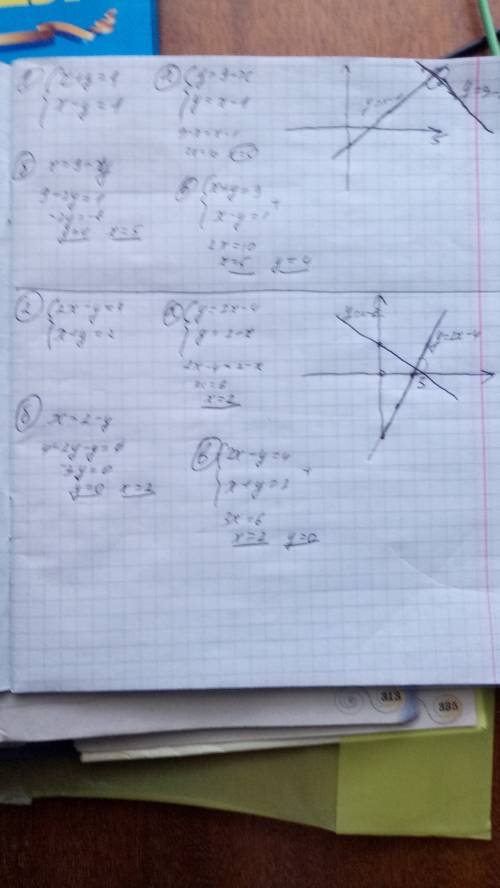 1) { x+y=9
{ x-y=1
а) { y=9-x
{ y=x-1
9-x=x-1
2x=10
y=x-1
5
б) x=9-y
9-2y=1
-2y=-8
y=4 x=5
в) { x+y=9
{ x-y=1 +
2x=10
x=5 y=4
2) { 2x-y=4
{ x+y=2
а) { y=2x-4
{ y=2-x
2x-4=2-x
3x=6
x=2
y=2x-4
S
б) x=2-y
4-2y-y=4
-3y=0
y=0 x=2
в) { 2x-y=4
{ x+y=2 +
3x=6
x=2 y=0
313
335